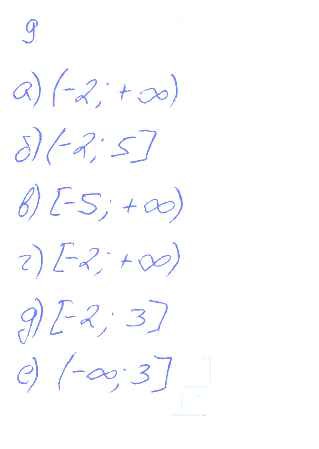 9
а) (-2; +∞)
б) (-2; 5]
в) [-5; +∞)
г) [-2; +∞)
д) [-2; 3]
е) (-∞; 3]